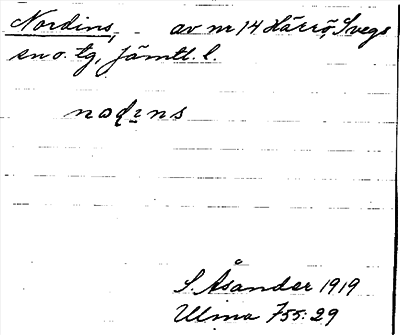 Nordins, av m 14 Härrö, Svegs
sn o. tg, Jämtl. l.
nodins
S. Åsander 1919
Ulma 755:29